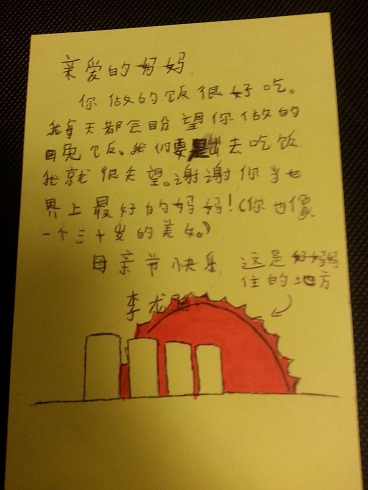 亲爱的妈妈
你做的饭很好吃。
我每天都会盼望你做的
晚饭。我们要是出去吃饭
我就很失望。谢谢你当世
界上最好的妈妈!(你也像
一个三十岁的美女。)
母亲节快乐
李龙
这是好妈妈
住的地方